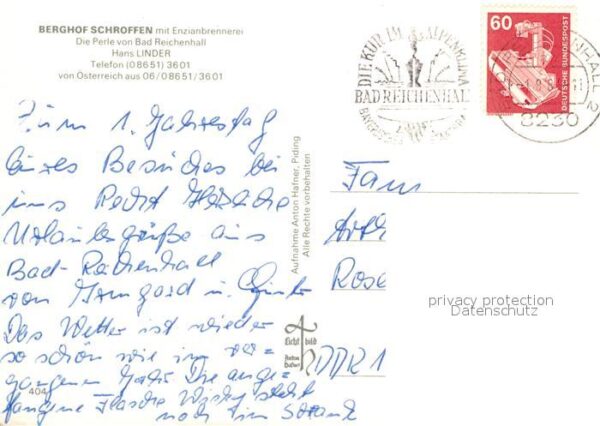 BERGHOF SCHROFFEN mit Enzianbrennerei
Die Perle von Bad Reichenhall
Hans LINDER
Telefon (08651) 3601
von Österreich aus 06/08651/3601
60
DEUTSCHE BUNDESPOST
DIE KUR IM ALPENKLIMA
BAD REICHENHALL
8230
Zum 1. Jahrestag
Eures Besuches bei
uns Recht Herzliche
Urlaubsgrüße aus
Bad-Reichenhall
von Irmgard u. Günter
Das Wetter ist wieder
so schön wie im ver-
gangenen Jahr. Die ange-
fangene Flasche Wisky steht
noch im Schrank
Aufnahme Anton Hafner, Piding
Alle Rechte vorbehalten
Licht bild
Anton
Hafner
404
Fam
Rose
DDR 1
privacy protection
Datenschutz